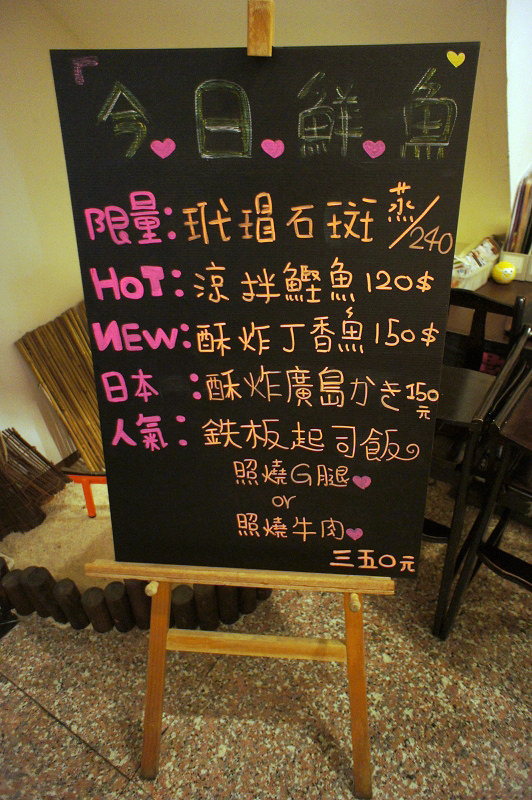 今日鮮魚
限量:玳瑁石斑 蒸/240
HOT:涼拌鰹魚120$
NEW:酥炸丁香魚150$
日本:酥炸廣島かき150元
人氣:鉄板起司飯
照燒G腿
or
照燒牛肉
三五0元